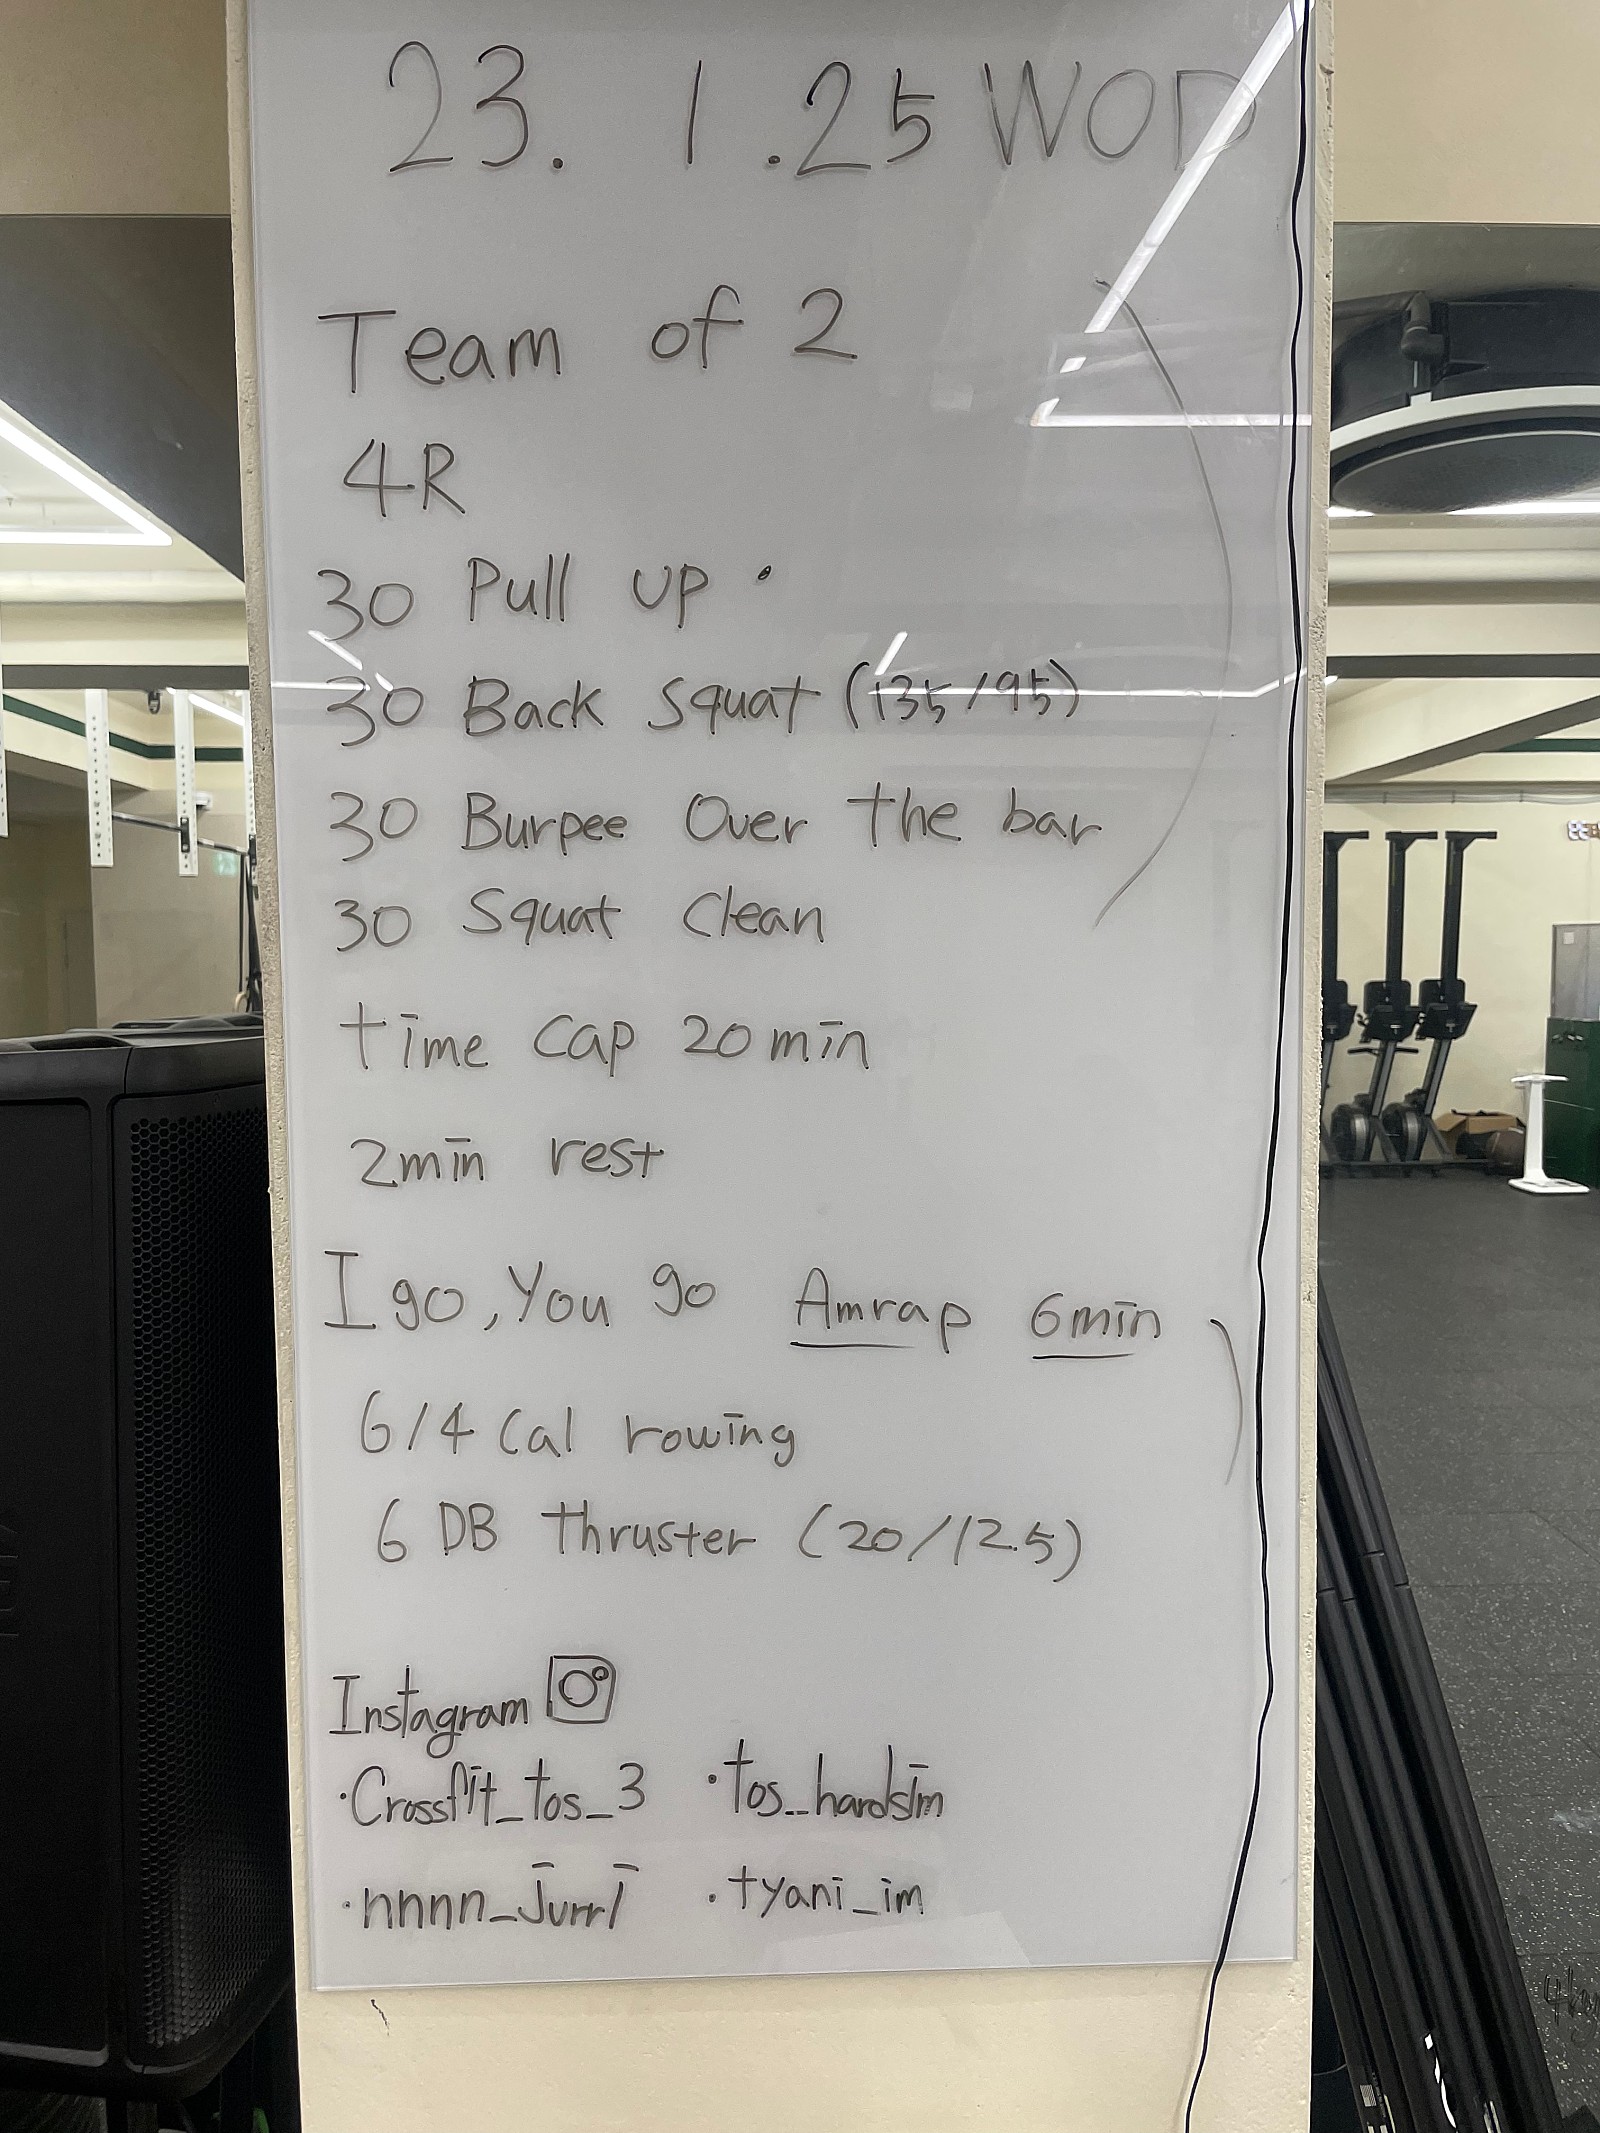 23. 1.25 WOD
Team of 2
4R
30 Pull up
30 Back squat (135/95)
30 Burpee Over the bar
30 Squat Clean
time cap 20min
2min rest
I go, You go Amrap 6min
6/4 Cal rowing
6 DB thruster (20/12.5)
Instagram
·Crossfit_tos_3 ·tos_hardsim
·nnnn_jurrl ·tyani_im